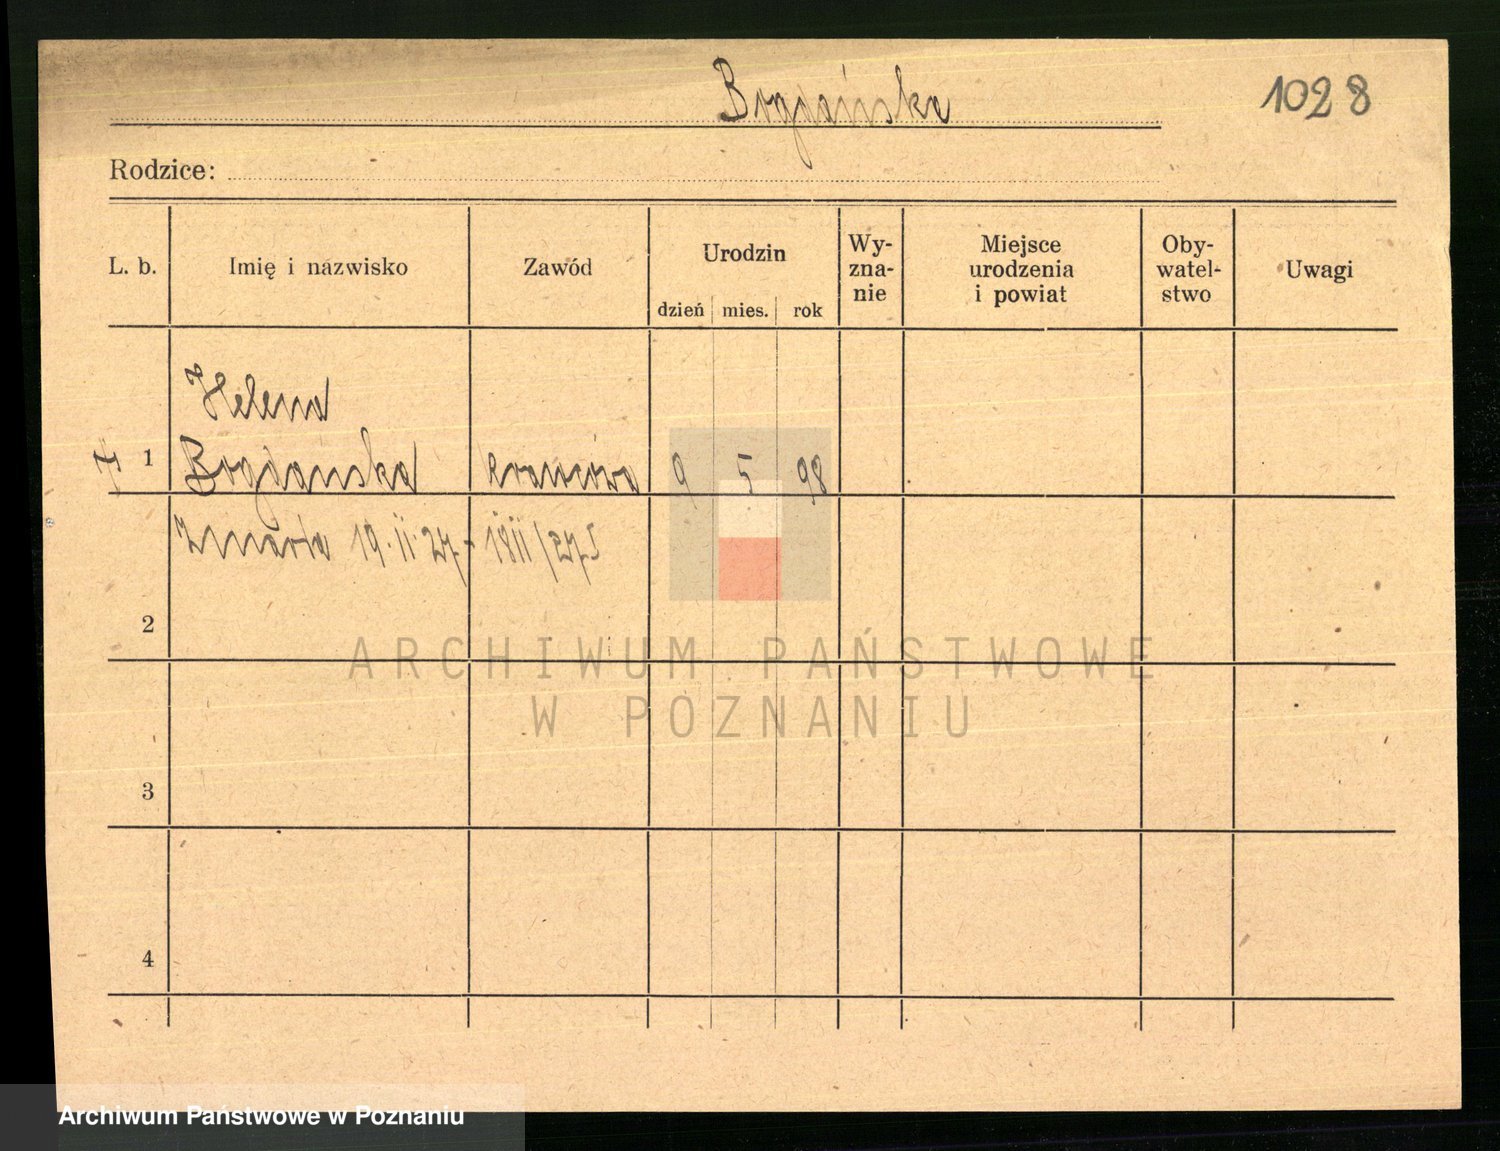 Bogdańska
1028
Rodzice:
L. b.
Imię i nazwisko
Zawód
Urodzin
dzień mies. rok
Wy-
zna-
nie
Miejsce
urodzenia
i powiat
Oby-
watel-
stwo
Uwagi
Helena
1 Bogdanska krawcowa 9 5 98
Zmarła 19.II.27 - 1811/27
2
3
4
ARCHIWUM PAŃSTWOWE
W POZNANIU
Archiwum Państwowe w Poznaniu